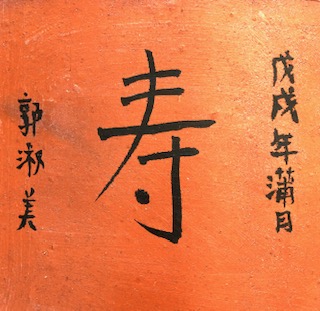 戊戌年蒲月
寿
郭淑美